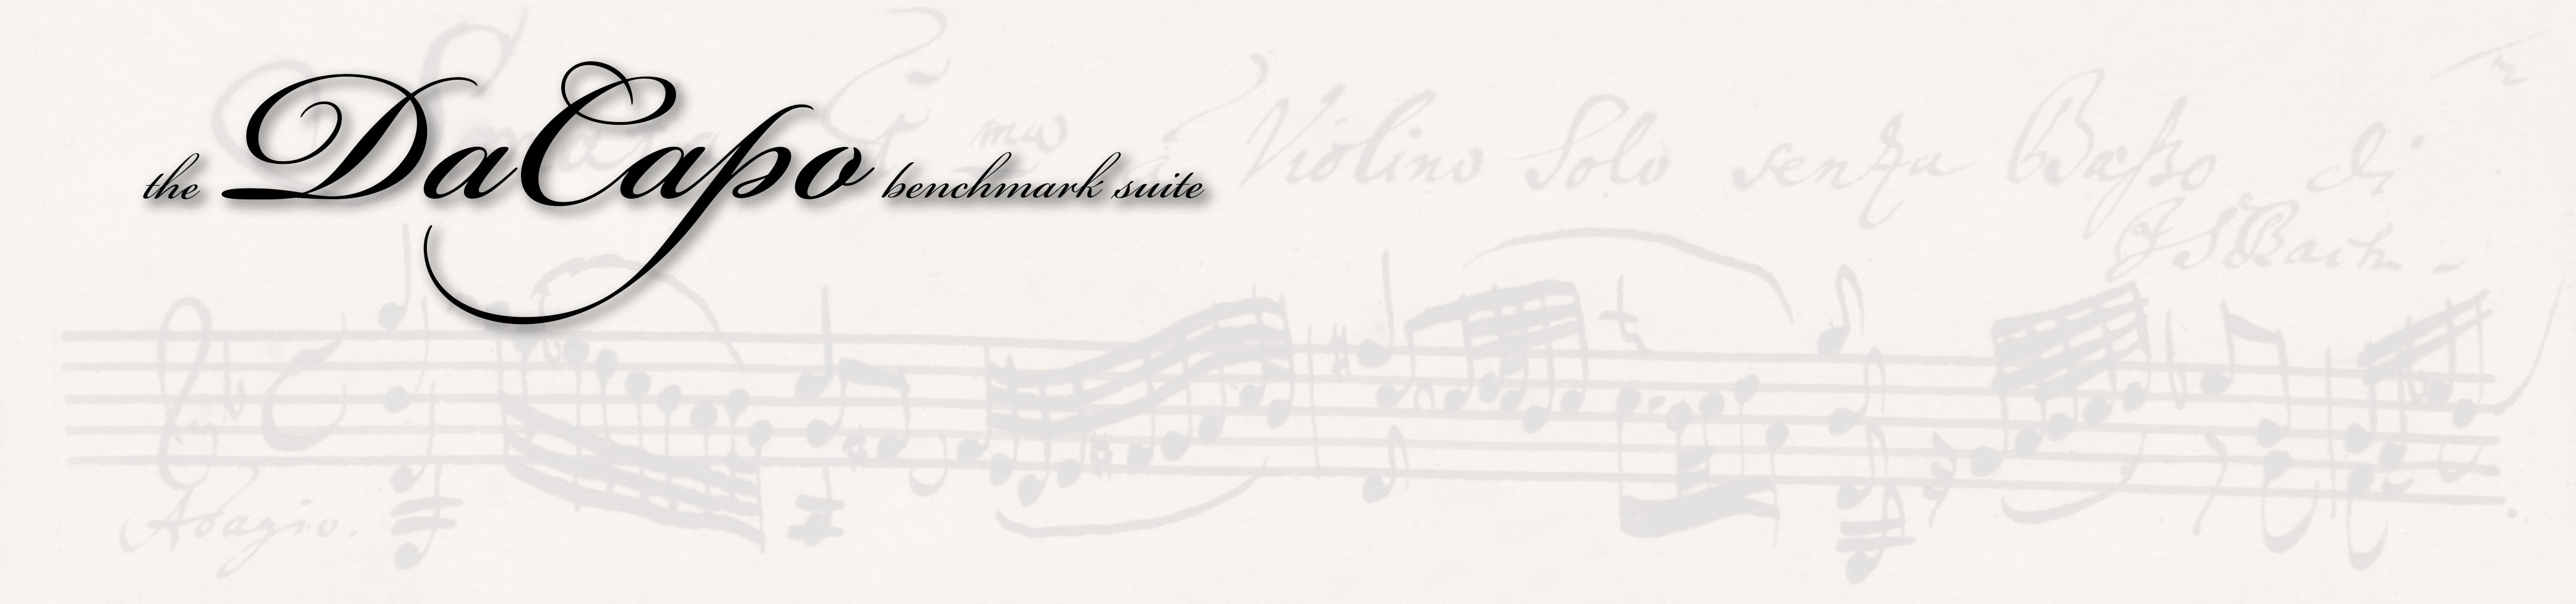 the DaCapo benchmark suite
Violino Solo senza Baßo di
JSBach-
Adagio.